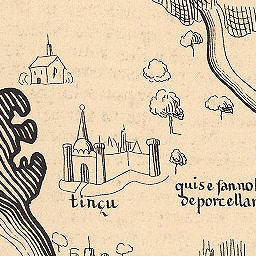 tinçu
quise fannol
de porcellan